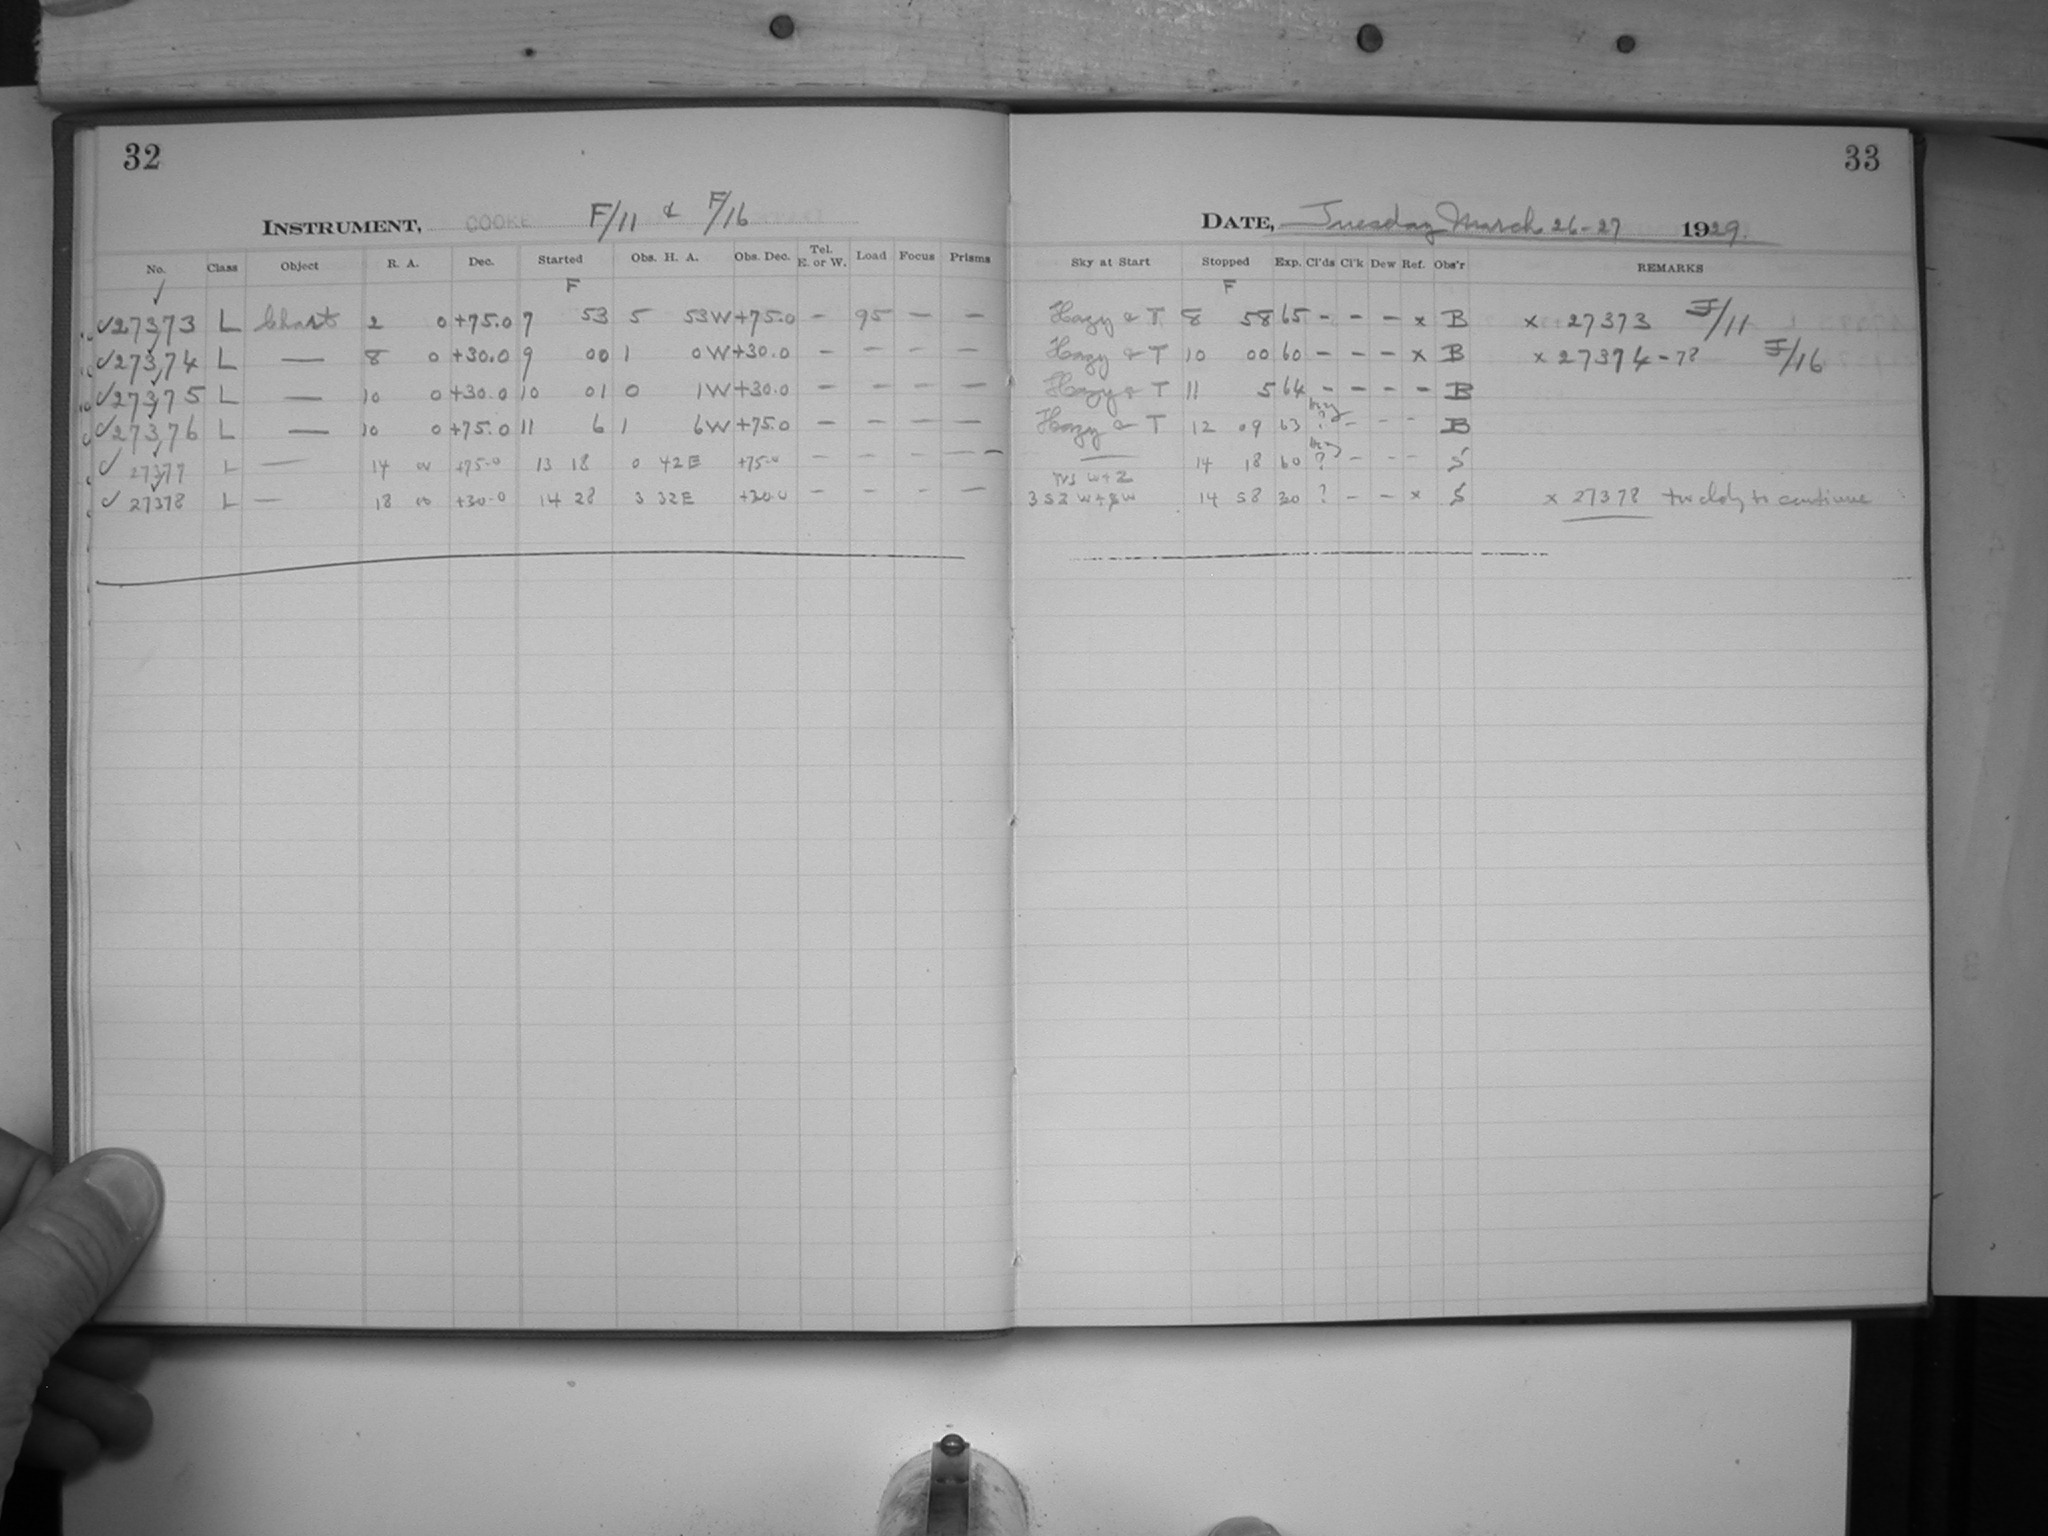 32
INSTRUMENT, COOKE F/11 & F/16
No. Class Object R. A. Dec. Started Obs. H. A. Obs. Dec. Tel. E. or W. Load Focus Prisms
F
✓27373 L Chart 2 0 +75.0 7 53 5 53W +75.0 - 95 - -
✓27374 L — 8 0 +30.0 9 00 1 0W +30.0 - - - -
✓27375 L — 10 0 +30.0 10 01 0 1W +30.0 - - - -
✓27376 L — 10 0 +75.0 11 6 1 6W +75.0 - - - -
✓27377 L — 14 00 +75.0 13 18 0 42E +75.0 - - - -
✓27378 L — 18 00 +30.0 14 28 3 32E +30.0 - - - -
33
DATE, Tuesday March 26-27 1929.
Sky at Start Stopped Exp. Cl'ds Cl'k Dew Ref. Obs'r REMARKS
F
Hazy & T 8 58 65 - - - x B x 27373 F/11
Hazy & T 10 00 60 - - - x B x 27374-78 F/16
Hazy & T 11 5 64 - - - - B
Hazy & T 12 09 63 hzy ? - - - B
— 14 18 60 hzy ? - - - S
14 58 30 ? - - x S x 27378 too cldy to continue